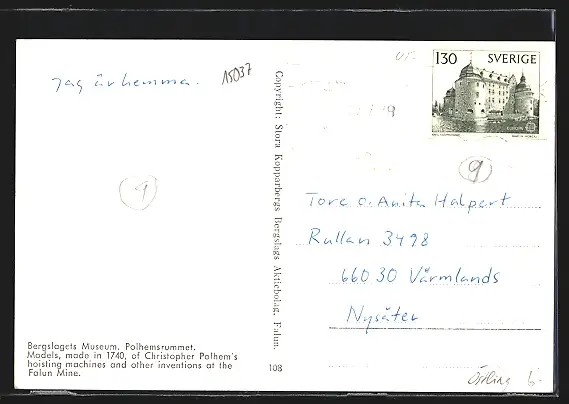 Jag är hemma.
15037
9
Bergslagets Museum. Polhemsrummet.
Models, made in 1740, of Christopher Polhem's
hoisting machines and other inventions at the
Falun Mine.
Copyright: Stora Kopparbergs Bergslags Aktiebolag, Falun.
108
130 SVERIGE
EUROPA
9
Tore o. Anita Halpert
Rullan 3498
660 30 Värmlands
Nysäter
Östling 6-